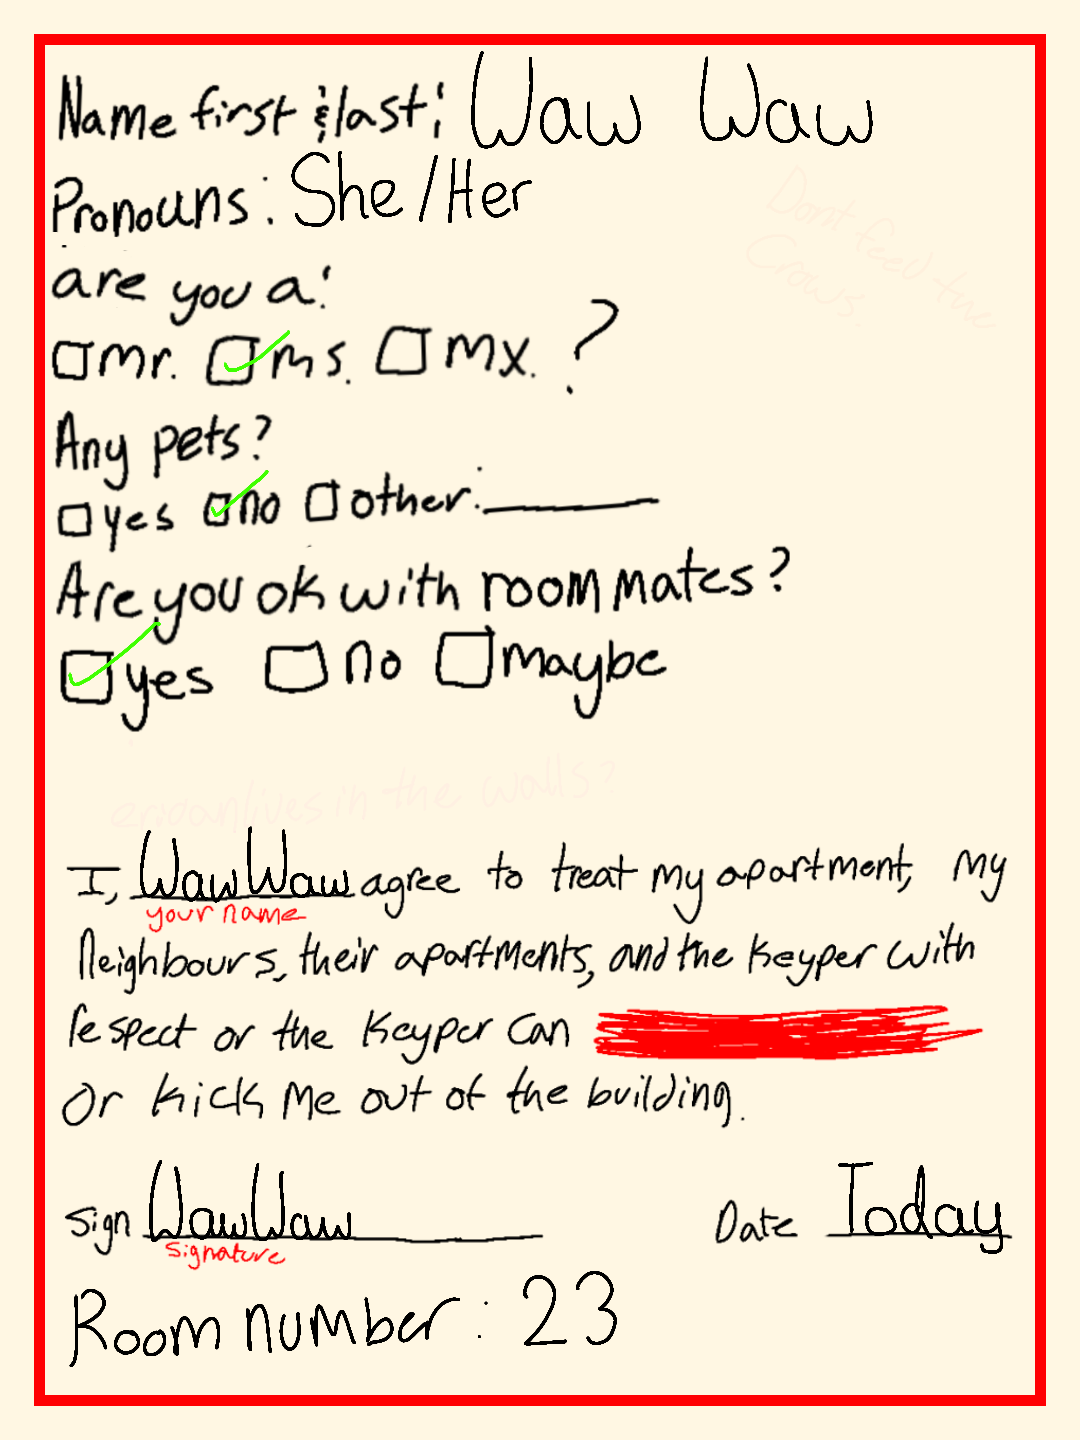 Name first & last: Waw Waw
Pronouns: She/Her
Dont feed the
Crows.
are you a:
mr. ms. mx. ?
Any pets?
yes no other:
Are you ok with roommates?
yes no maybe
lives in the walls?
I, Waw Waw agree to treat my apartment, my
your name
Neighbours, their apartments, and the Keyper with
respect or the Keyper can
Or kick me out of the building.
Sign Waw Waw Date Today
Signature
Room number: 23